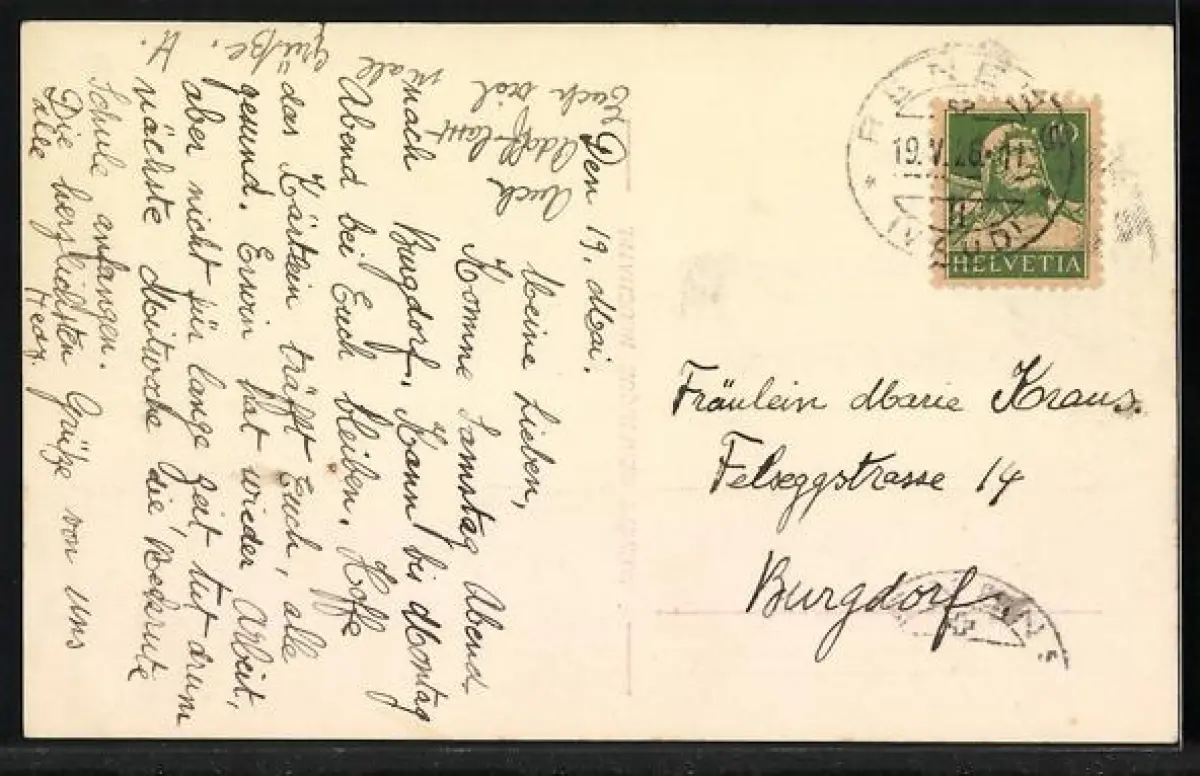 Den 19. Mai.
Meine Lieben,
Komme Samstag Abend
nach Burgdorf. Kann bis Montag
Abend bei Euch bleiben. Hoffe
das Kärtlein träfft Euch, alle
gesund. Erwin hat wieder Arbeit,
aber nicht für lange Zeit, tut drum
nächste Mitwoche die Rekrute
Schule anfangen.
Die herzlichsten Grüße von uns
alle
Auch
Euch viel mall
grüße.
Fräulein Marie Kraus.
Felseggstrasse 14
Burgdorf.
19.V.26
HELVETIA